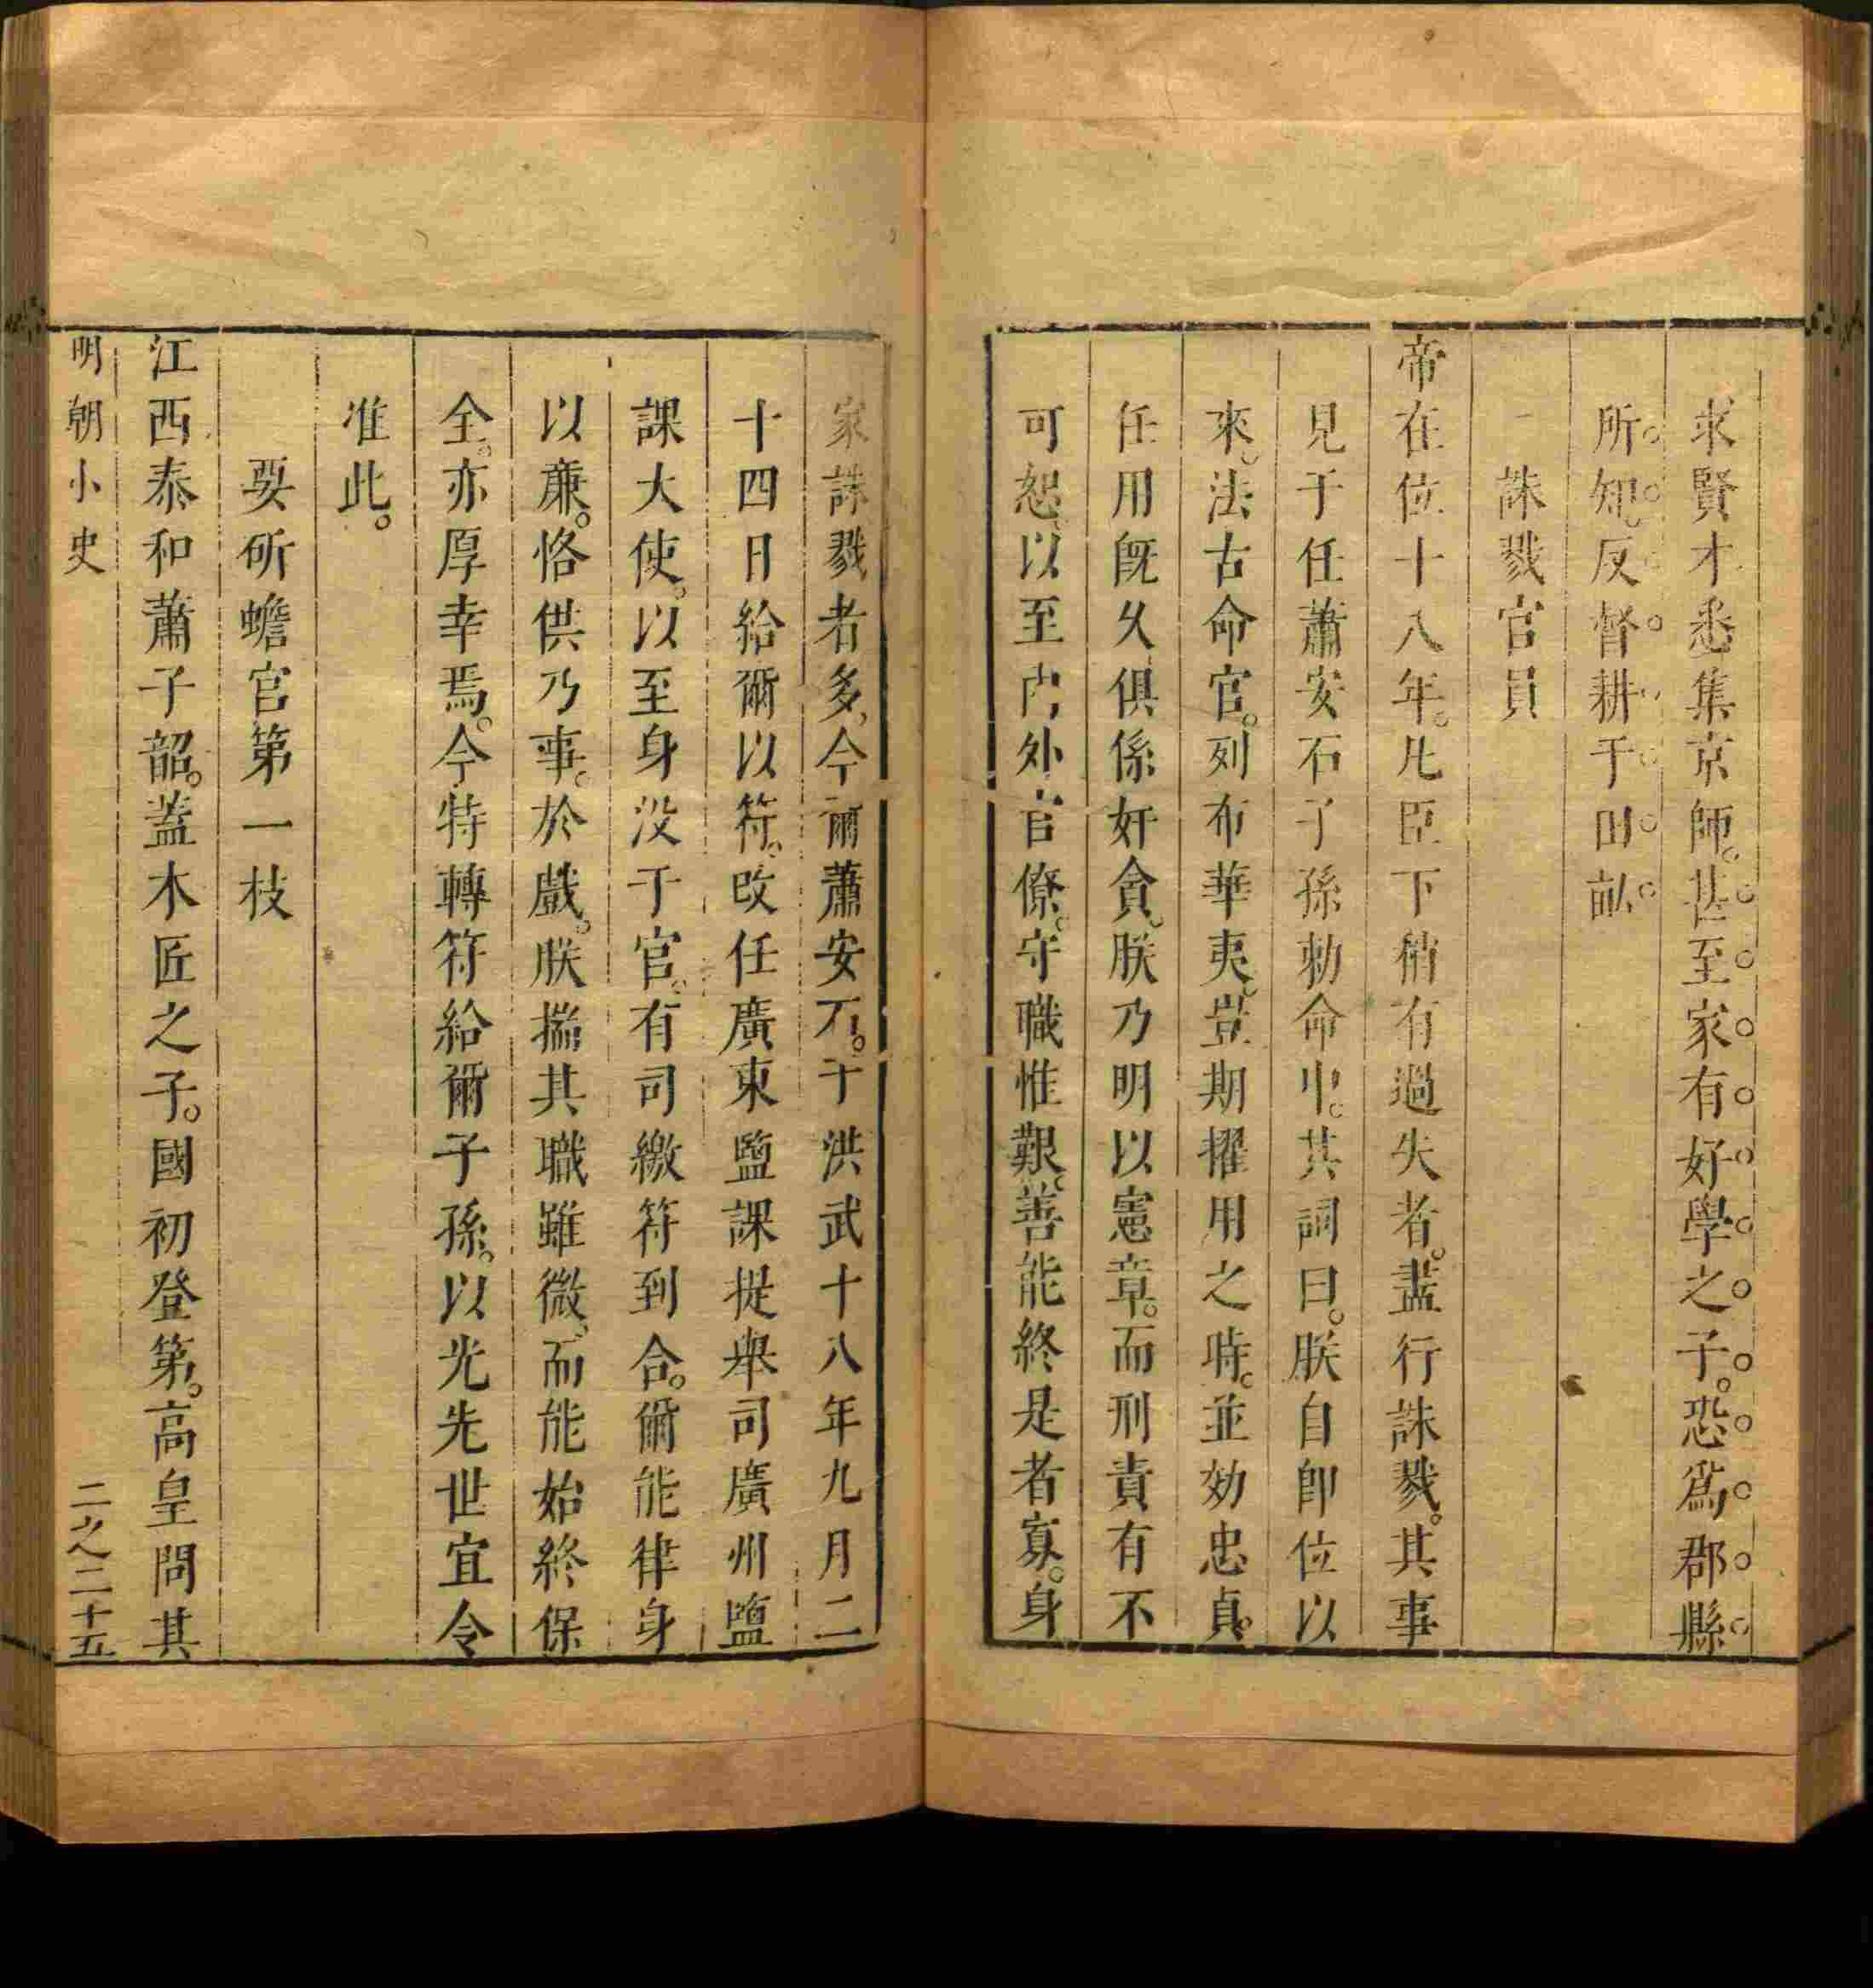 求賢才悉集京師。甚至家有好學之子。恐爲郡縣
所知。反督耕于田畝
誅戮官員
帝在位十八年。凡臣下稍有過失者。盡行誅戮。其事
見于任蕭安石子孫勅命中。其詞曰。朕自卽位以
來。法古命官。列布華夷。豈期擢用之時。並効忠貞。
任用旣久俱係奸貪。朕乃明以憲章。而刑責有不
可恕。以至內外官僚。守職惟艱。善能終是者寡。身
家誅戮者多。今爾蕭安石。于洪武十八年九月二
十四日給爾以符。改任廣東鹽課提舉司廣州鹽
課大使。以至身没于官。有司繳符到合。爾能律身
以亷。恪供乃事。於戲。朕揣其職雖微。而能始終保
全。亦厚幸焉。今特轉符給爾子孫。以光先世宜令
准此。
要斫蟾宫第一枝
江西泰和蕭子韶。蓋木匠之子。國初登第。高皇問其
明朝小史
二之二十五